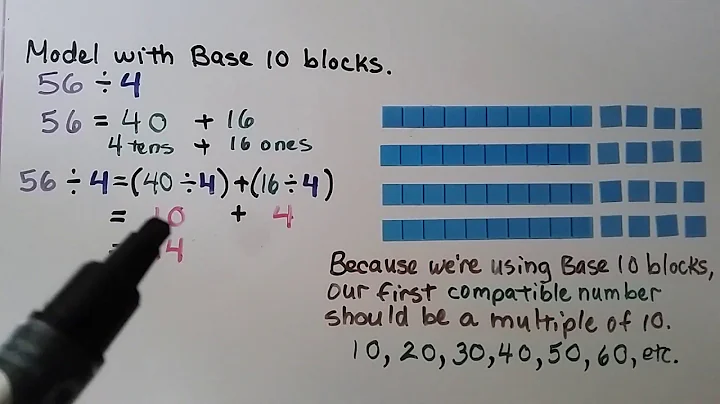 Model with Base 10 blocks.
56 ÷ 4
56 = 40 + 16
4 tens + 16 ones
56 ÷ 4 = (40 ÷ 4) + (16 ÷ 4)
= 10 + 4
= 14
Because we're using Base 10 blocks,
our first compatible number
should be a multiple of 10.
10, 20, 30, 40, 50, 60, etc.